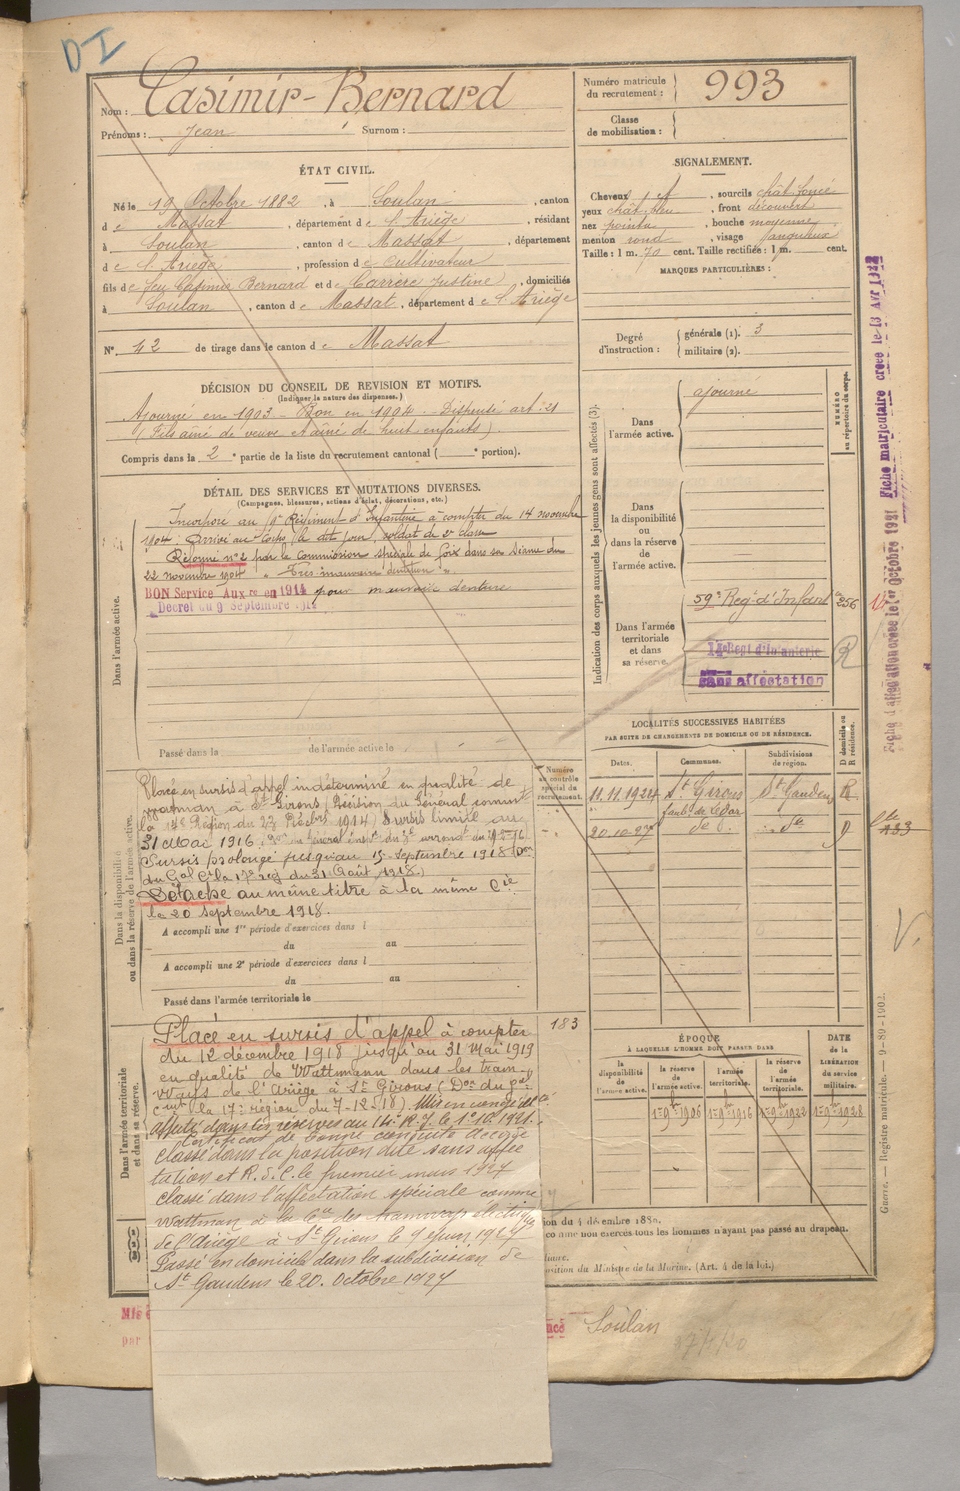 DI
Nom : Casimir-Bernard
Prénoms : Jean Surnom :
Numéro matricule du recrutement : 993
Classe de mobilisation :
ÉTAT CIVIL.
Né le 19 Octobre 1882, à Soulan, canton
de Massat, département de l'Ariège, résidant
à Soulan, canton de Massat, département
de l'Ariège, profession de Cultivateur
fils de feu Casimir Bernard et de Carrère Justine, domiciliés
à Soulan, canton de Massat, département de l'Ariège
N° 42 de tirage dans le canton de Massat
SIGNALEMENT.
Cheveux et, sourcils chât foncé
yeux chât bleu, front découvert
nez pointu, bouche moyenne
menton rond, visage anguleux
Taille : 1 m. 70 cent. Taille rectifiée : 1 m. cent.
MARQUES PARTICULIÈRES :
Degré d'instruction : générale (1). 3
militaire (2).
DÉCISION DU CONSEIL DE REVISION ET MOTIFS.
(Indiquer la nature des dispenses.)
Ajourné en 1903 - Bon en 1904 - Dispensé art. 21
(Fils aîné de veuve et aîné de huit enfants).
Compris dans la 2e partie de la liste du recrutement cantonal ( e portion).
DÉTAIL DES SERVICES ET MUTATIONS DIVERSES.
(Campagnes, blessures, actions d'éclat, décorations, etc.)
Dans l'armée active.
Incorporé au Régiment d'Infanterie à compter du 14 novembre
1904. Arrivé au corps le dit jour, soldat de 2e classe
Réformé n°2 par la Commission spéciale de Foix dans sa séance du
22 novembre 1904 "Très mauvaise dentition"
BON Service Auxre en 1914 pour mauvaise denture
Décret du 9 Septembre 1914
Passé dans la de l'armée active le
Dans la disponibilité ou dans la réserve de l'armée active.
Placé en sursis d'appel indéterminé en qualité de
wattman à St Girons (Décision du Général commt
la 17e Région du 23 Décbre 1914) Sursis limité au
31 Mai 1916,
Sursis prolongé jusqu'au 15 Septembre 1918 (Don
du Gal Ct la 17e reg du 31 Août 1918.)
Détaché au même titre à la même Cie
le 20 Septembre 1918.
A accompli une 1re période d'exercices dans l
du au
A accompli une 2e période d'exercices dans l
du au
Passé dans l'armée territoriale le
Numéro au contrôle spécial du recrutement.
183
Dans l'armée territoriale et dans sa réserve.
Placé en sursis d'appel à compter
du 12 décembre 1918 jusqu'au 31 Mai 1919
en qualité de Wattmann dans les tram-
ways de l'Ariège à St Girons (Don du Gal
Cmt la 17e région du 7-12-18) Mis en congé
affecté dans les réserves au 14e R.I. le 1.10.1921.
Certificat de bonne conduite accordé
Classé dans la position dite sans affec
tation et R.d.C. le premier mars 1927
Classé dans l'affectation spéciale comme
wattman à la Cie des tramways électriques
de l'Ariège à St Girons le 9 juin 1927
Passé en domicile dans la subdivision de
St Gaudens le 20 Octobre 1927
Indication des corps auxquels les jeunes gens sont affectés (3).
NUMÉRO au répertoire du corps.
Dans l'armée active.
ajourné
Dans la disponibilité ou dans la réserve de l'armée active.
Dans l'armée territoriale et dans sa réserve.
59e Regt d'Infantie 256
14e Regt d'Infanterie
Sans affectation
R
Fiche matriculaire créée le 13 Avr 1922
Fiche d'affectation créée le 1er Octobre 1921
LOCALITÉS SUCCESSIVES HABITÉES
PAR SUITE DE CHANGEMENTS DE DOMICILE OU DE RÉSIDENCE.
Dates. Communes. Subdivisions de région. D domicile ou R résidence.
11.11.1924 St Girons St Gaudens R
20-10-27 de do. D
133
V.
ÉPOQUE
À LAQUELLE L'HOMME DOIT PASSER DANS
la disponibilité de l'armée active. la réserve de l'armée active. l'armée territoriale. la réserve de l'armée territoriale.
DATE de la LIBÉRATION du service militaire.
1er 9bre 1906 1er 9bre 1916 1er 9bre 1922 1er 9bre 1928
Guerre. — Registre matricule. — 9-89-1902.
ion du 4 décembre 1889.
comme non exercés tous les hommes n'ayant pas passé au drapeau.
osition du Ministre de la Marine. (Art. 4 de la loi.)
Mis
par
Soulan